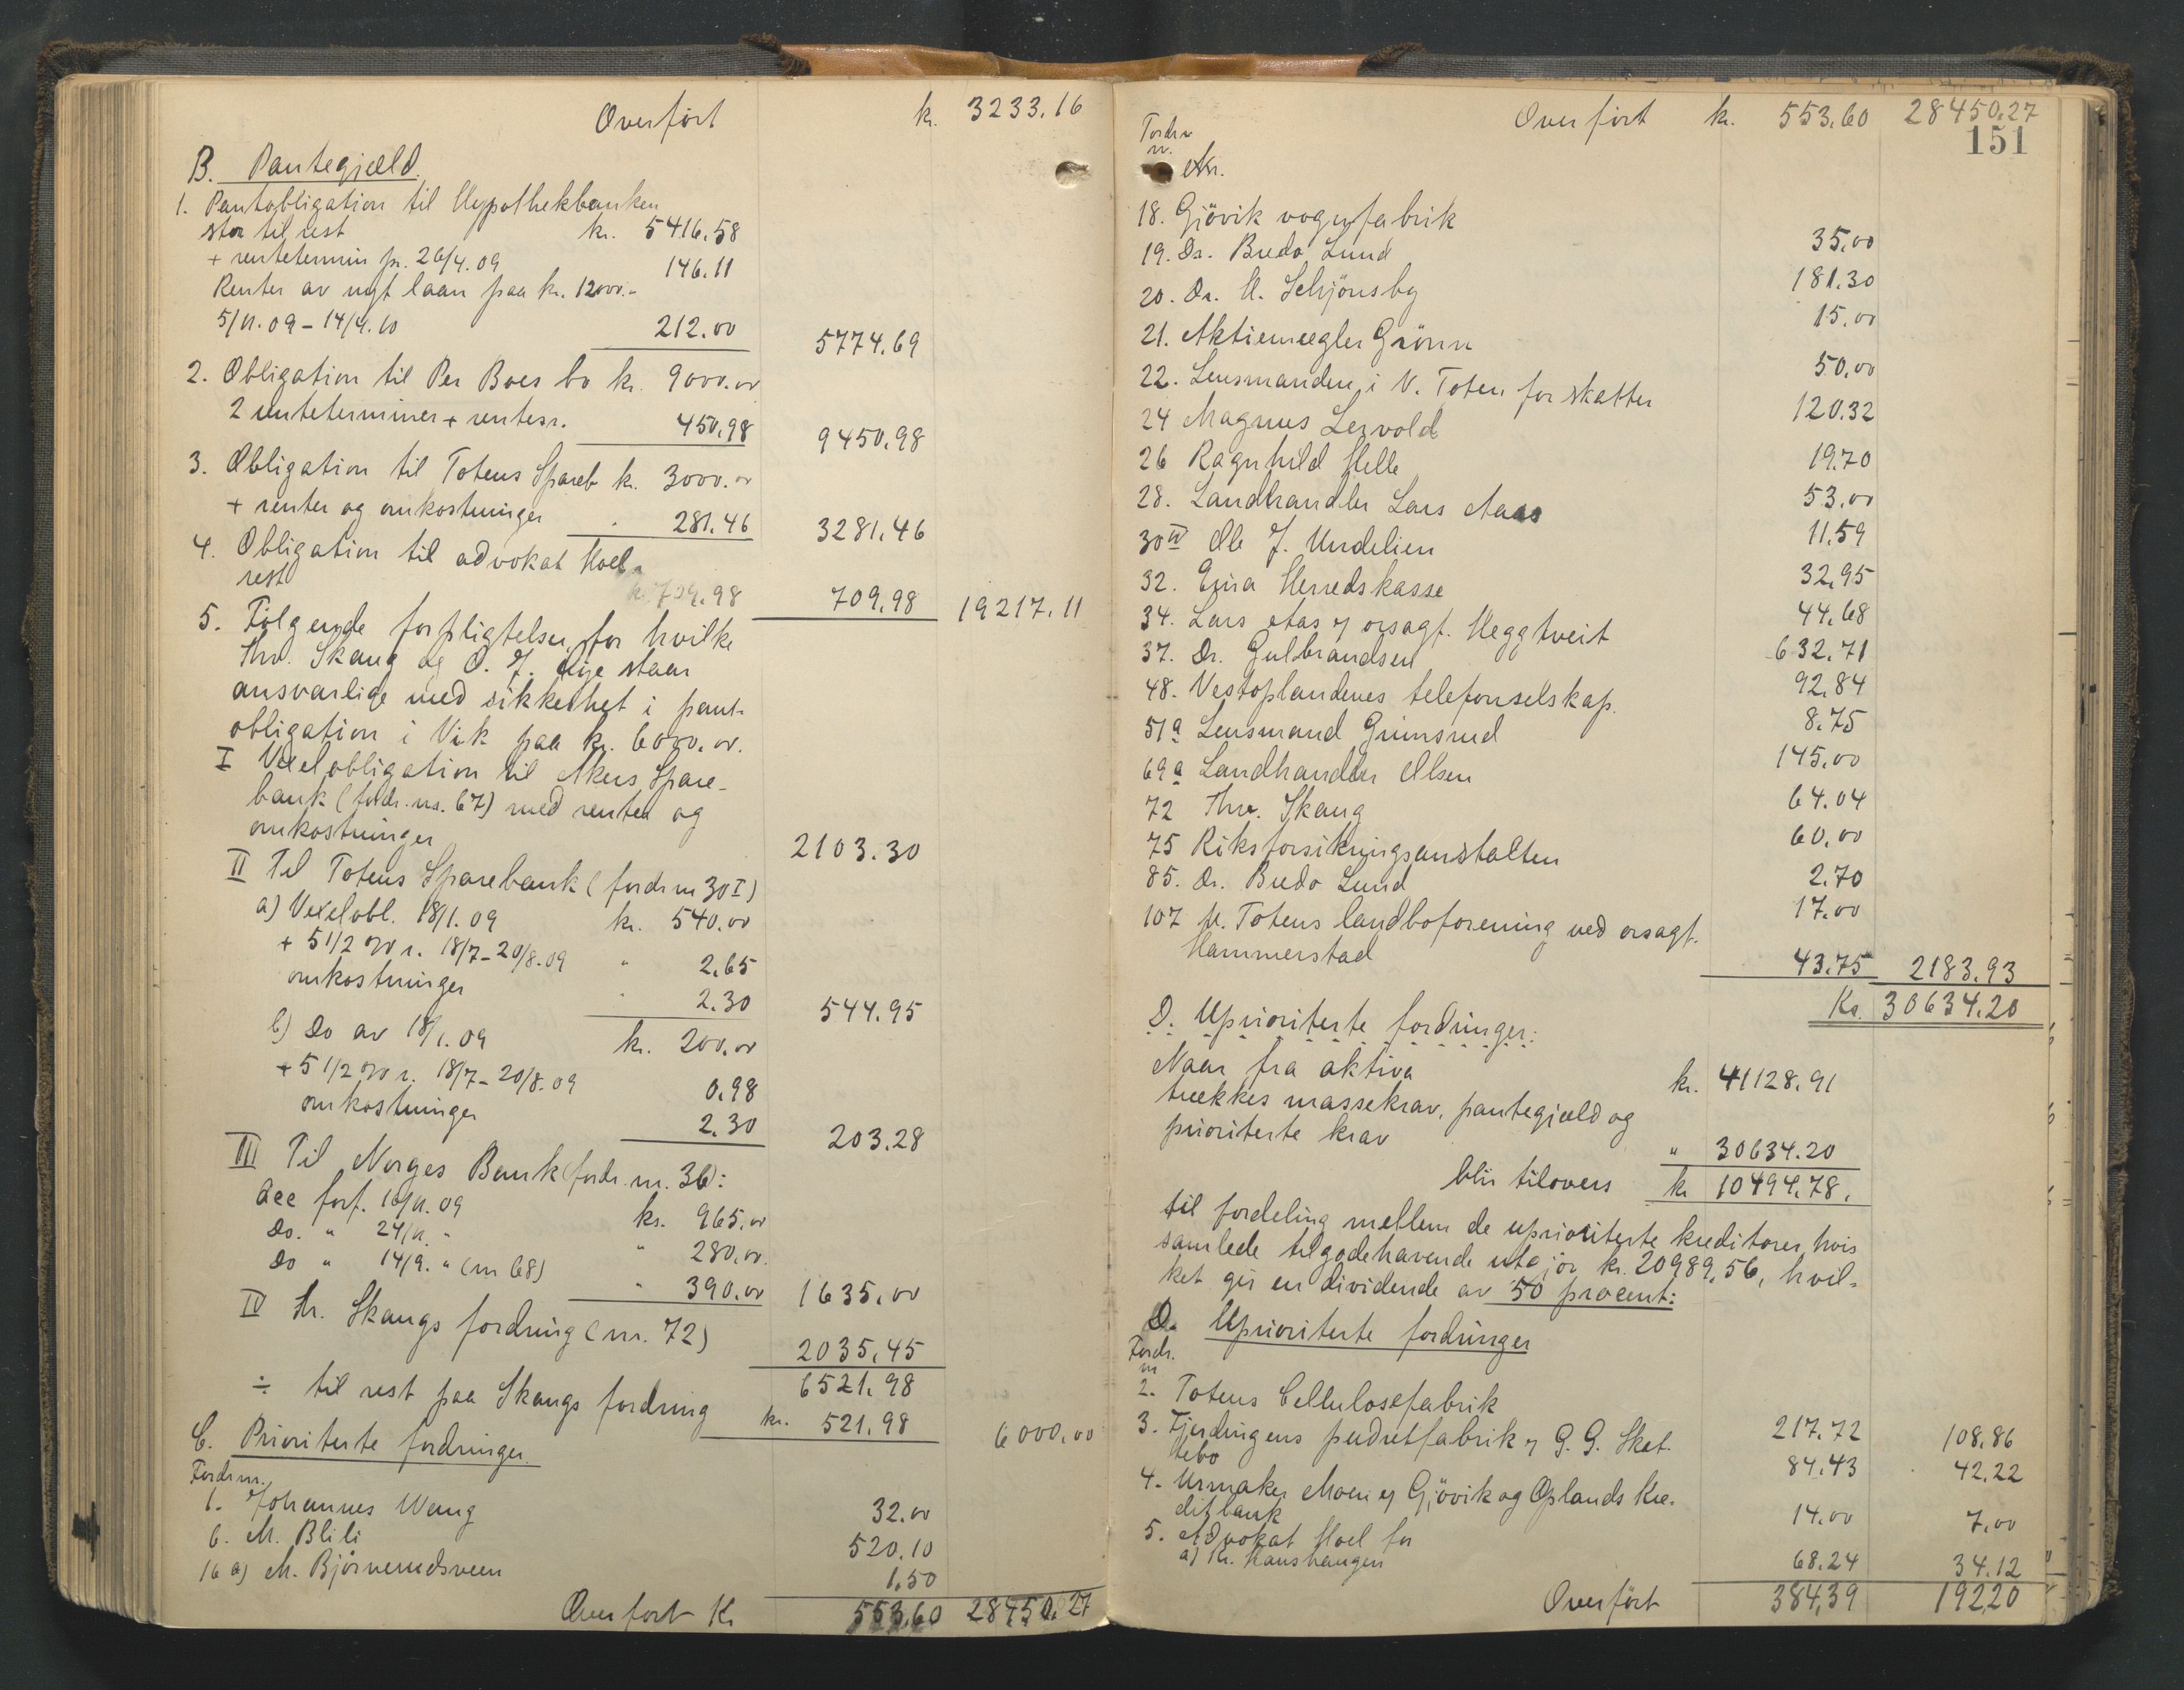 Overført kr. 3233.16
B. Pantegjæld.
1. Pantobligation til Hypothekbanken
stor til rest kr. 5416.58
+ rentetermin pr. 26/4.09 146.11
Renter av nyt laan paa kr. 12000.-
5/11.09 - 14/4.10 212.00 5774.69
2. Obligation til Per Boes bo kr. 9000.00
2 renteterminer + rentesr. 450.98 9450.98
3. Obligation til Totens Spareb kr. 3000.00
+ renter og omkostninger 281.46 3281.46
4. Obligation til advokat Hoel
rest kr. 709.98 709.98 19217.11
5. Følgende forpligtelser, for hvilke
Thv. Skaug og O. J. Lye staar
ansvarlige med sikkerhet i pant-
obligation i Vik paa kr. 6000.00.
I Vexelobligation til Akers Spare-
bank (fordr. nr. 67) med renter og
omkostninger 2103.30
II Til Totens Sparebank (fordr nr 30 I)
a) Vexelobl. 18/1.09 kr. 540.00
+ 5 1/2 % r. 18/7 - 20/8.09 " 2.65
omkostninger " 2.30 544.95
b) Do av 18/1.09 kr. 200.00
+ 5 1/2 % r. 18/7 - 20/8.09 0.98
omkostninger 2.30 203.28
III Til Norges Bank (fordr. nr. 36):
Acc forf. 10/11.09 kr. 965.00
Do. " 24/11. " " 280.00.
Do " 14/9. " (nr 68) " 390.00 1635.00
IV Th. Skaugs fordring (nr. 72) 2035.45
6521.98
÷ til rest paa Skaugs fordring kr. 521.98 6000.00
C. Prioriterte fordringer.
Fordr nr.
1. Johannes Wang 32.00
6. M. Blili 520.10
16 a) M. Bjørnerudsveen 1.50
Overført Kr 553.60 28450.27
Overført kr. 553.60 28450.27
151
Fordr.
nr.
18. Gjøvik vognfabrik 35.00
19. Dr. Bredo Lund 181.30
20. Dr. H. Schjønsby 15.00
21. Aktiemægler Grønn 50.00
22. Lensmanden i V. Toten for skatter 120.32
24 Magnus Lervold 19.70
26 Ragnhild Helle 53.00
28. Landhandler Lars Aaas 11.59
30 IV Ole J. Undelien 32.95
32. Eina Herredskasse 44.68
34. Lars Aas v/ orsagf. Heggtveit 632.71
37. Dr. Gulbrandsen 92.84
48. Vestoplandenes telefonselskap. 8.75
51 a Lensmand Grimsrud 145.00
69 a Landhandler Olsen 64.04
72 Thv. Skaug 60.00
75 Riksforsikringsanstalten 2.70
85. Dr. Bredo Lund 17.00
107 V. Totens landboforening ved orsagf.
Hammerstad 43.75 2183.93
Kr. 30634.20
D. Uprioriterte fordringer:
Naar fra aktiva kr. 41128.91
trækkes massekrav, pantegjæld og
prioriterte krav " 30634.20
blir tilovers kr 10494.78.
til fordeling mellem de uprioriterte kreditorer, hvis
samlede tilgodehavende utgjør kr. 20989,56, hvil-
ket gir en dividende av 50 procent:
D. Uprioriterte fordringer
Fordr.
nr
2. Totens Cellulosefabrik 217.72 108.86
3. Fjerdingens pudretfabrik v/ G. G. Sket-
tebo 84.43 42.22
4. Urmaker Moen v/ Gjøvik og Oplands Kre-
ditbank 14.00 7.00
5. Advokat Hoel for
a) Kr. Haushaugen 68.24 34.12
Overført 384.39 192.20